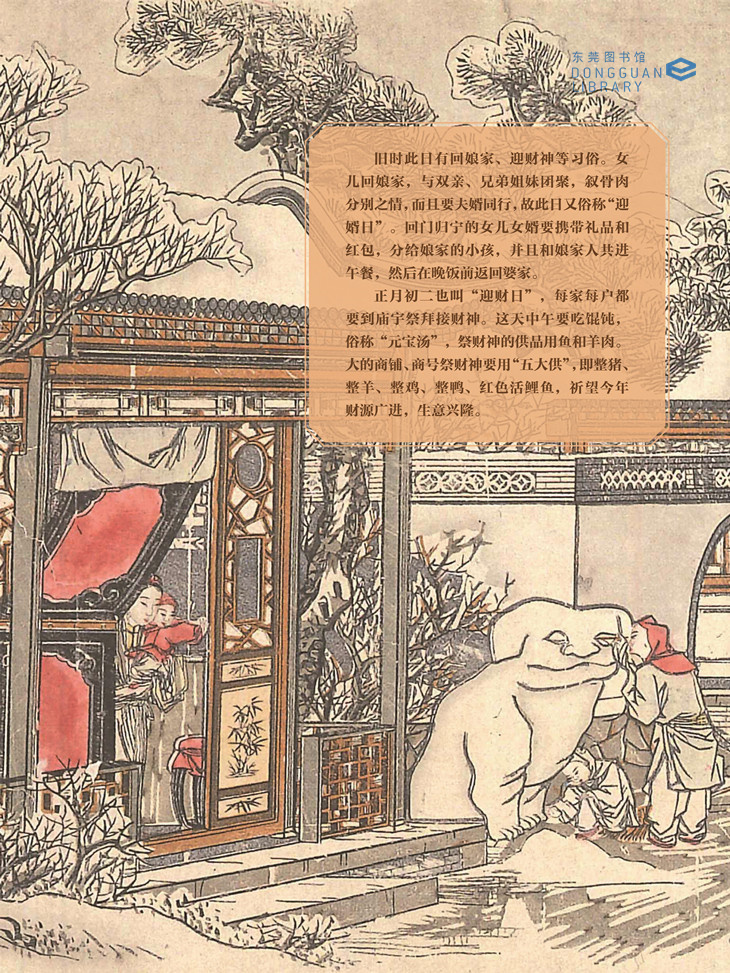 东莞图书馆
DONGGUAN
LIBRARY
旧时此日有回娘家、迎财神等习俗。女
儿回娘家，与双亲、兄弟姐妹团聚，叙骨肉
分别之情，而且要夫婿同行，故此日又俗称“迎
婿日”。回门归宁的女儿女婿要携带礼品和
红包，分给娘家的小孩，并且和娘家人共进
午餐，然后在晚饭前返回婆家。
正月初二也叫“迎财日”，每家每户都
要到庙宇祭拜接财神。这天中午要吃馄饨，
俗称“元宝汤”，祭财神的供品用鱼和羊肉。
大的商铺、商号祭财神要用“五大供”，即整猪、
整羊、整鸡、整鸭、红色活鲤鱼，祈望今年
财源广进，生意兴隆。